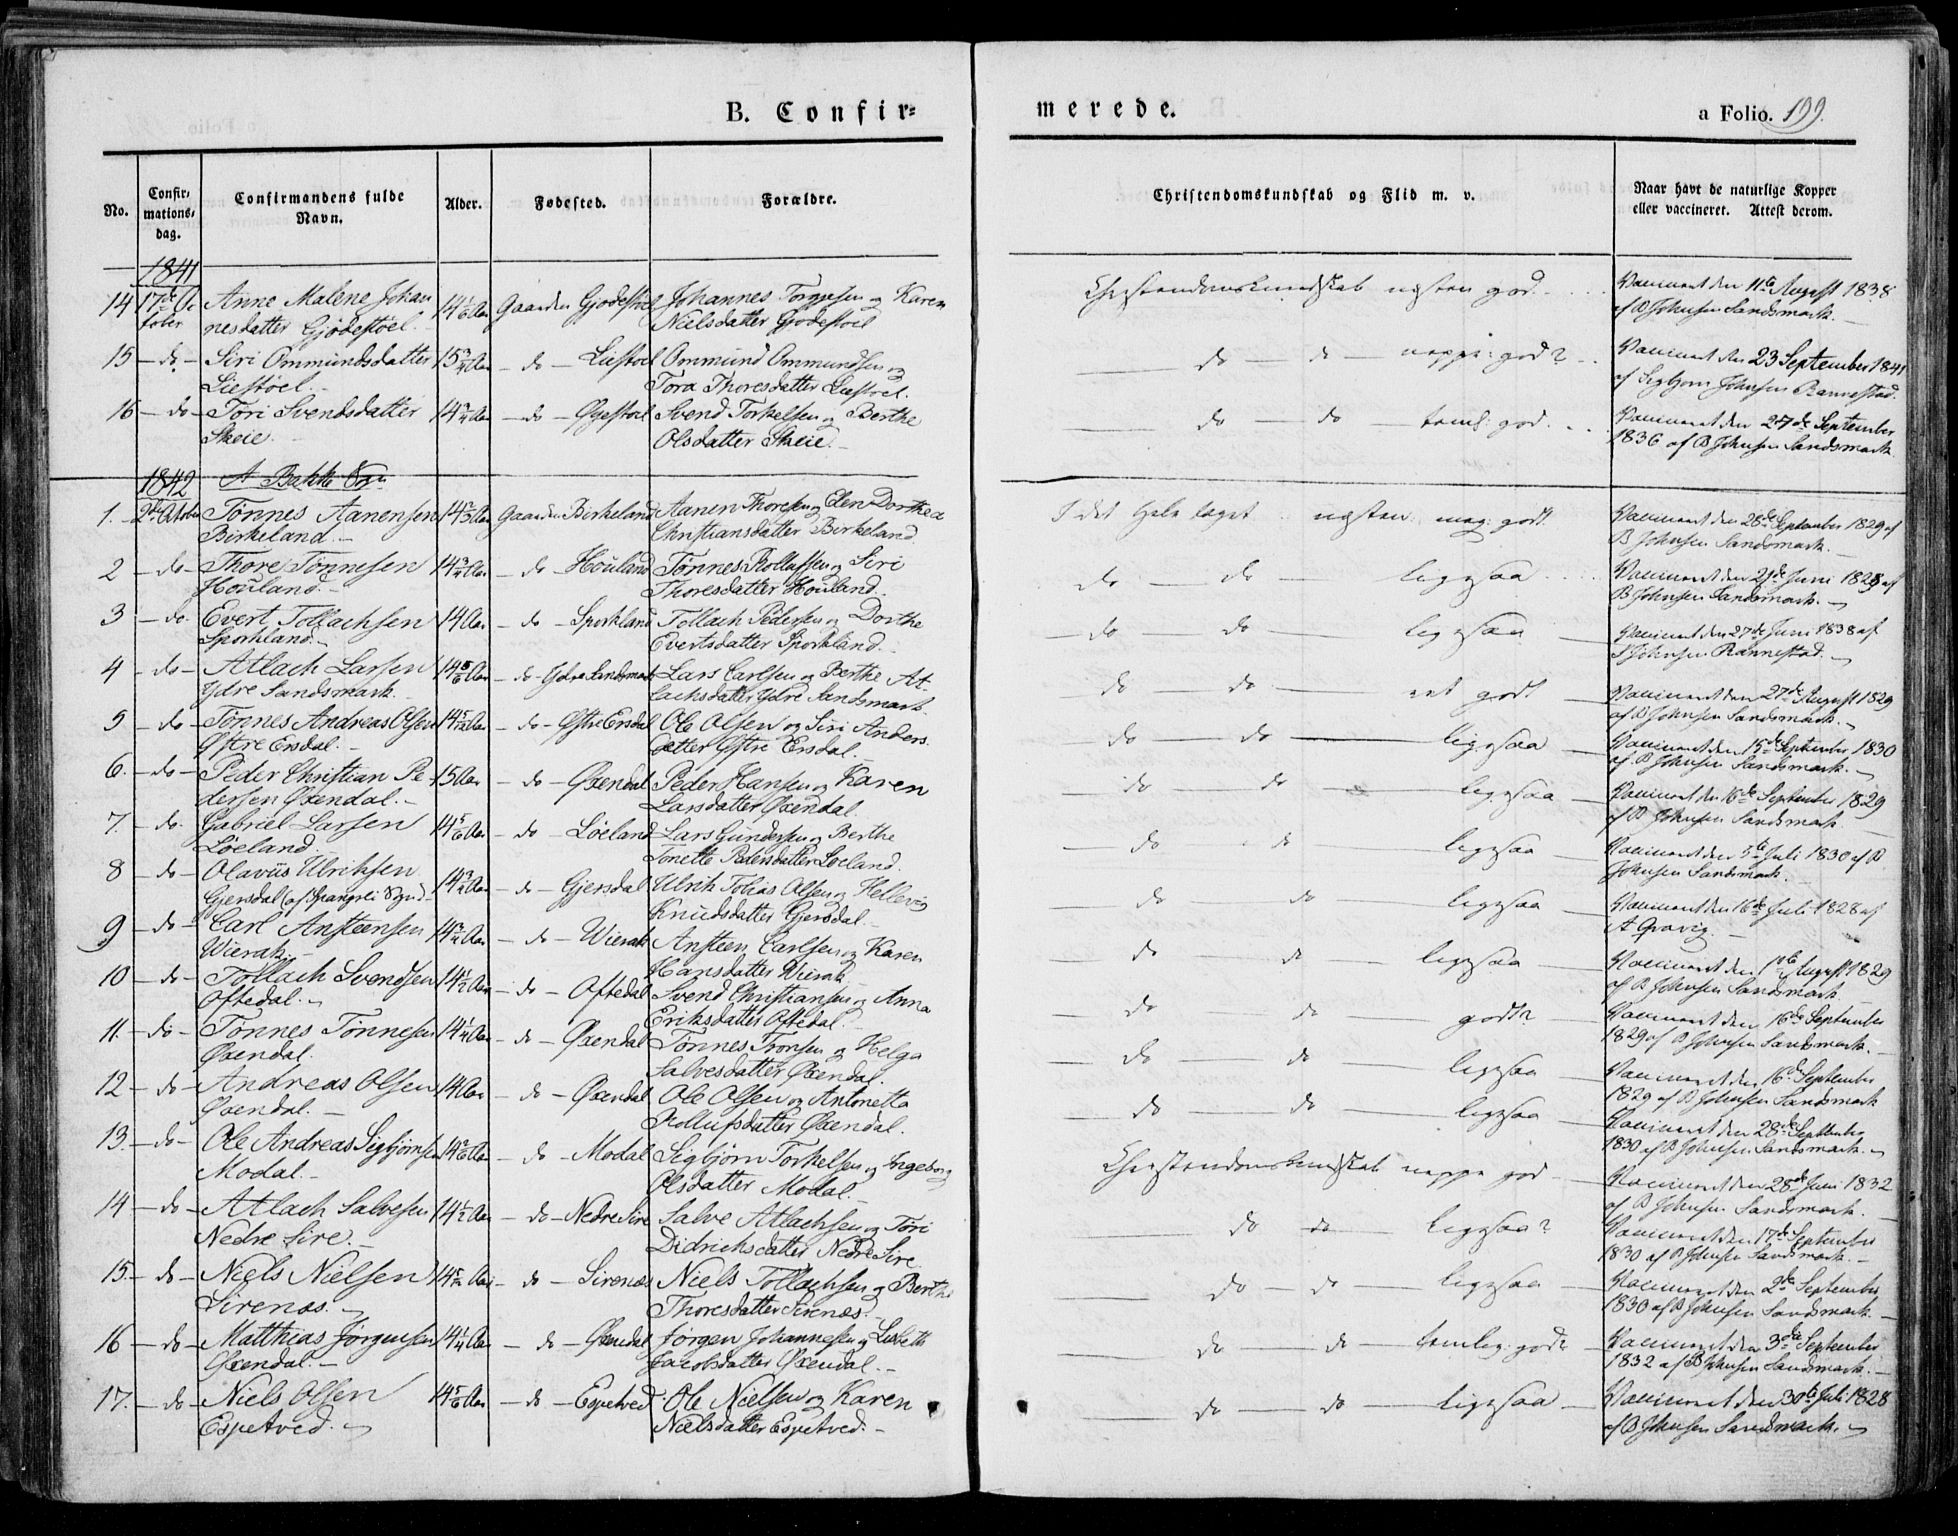 B. Confir=
merede.
a Folio. 199.
No.
Confir-
mations-
dag.
Confirmandens fulde
Navn.
Alder.
Fødested.
Forældre.
Christendomskundskab og Flid m. v.
Naar havt de naturlige Kopper
eller vaccineret. Attest derom.
1841
14 17de Oc Anne Malene Johan 14 1/6 Aar Gaarden Gjødestøel Johannes Torgjesen og Karen Christendomskundskab næsten god. Vaccineret den 11te August 1838
tober nesdatter Gjødestøel. Nielsdatter Gjødestøel af B Johnsen Sandsmark.
15 - do - Siri Ommundsdatter 15 3/4 Aar - do - Liestøel Ommund Ommundsen og do - do - neppe god? Vaccineret den 23 September 1841
Liestøel. Tora Thoresdatter Liestøel. af Sigbjørn Johnsen Rannestad.
16 - do - Tori Svendsdatter 14 3/4 Aar - do - Øyestøel Svend Torkelsen og Berthe do - do - teml: god. Vaccineret den 27de September
Skeie. Olsdatter Skeie. 1836 af B Johnsen Sandsmark
1842 A Bakke Sogn
1. 2den Octobr Tønnes Aanensen 14 Aar Gaarden Birkeland Aanen Thoresen og Elen Dorthea I det Hele taget næsten meg: godt. Vaccineret den 28de September 1829 af
Birkeland. Christiansdatter Birkeland B Johnsen Sandsmark.
2 - do - Thore Tønnesen 14 3/4 Aar - do - Houland Tønnes Rollufsen og Siri do - do - ligesaa Vaccineret den 21de Juni 1829 af
Houland. Thoresdatter Houland. B Johnsen Sandsmark.
3 - do - Evert Tollachsen 14 Aar - do - Sporkland Tollach Pedersen og Dorthe do do - ligesaa Vaccineret den 27de Juni 1838 af
Sporkland. Evertsdatter Sporkland. S Johnsen Rannestad.
4 - do - Atlach Larsen 14 5/6 Aar - do - Ydre Sandsmark Lars Carlsen og Berthe At- do do - ret godt Vaccineret den 27de August 1829
Ydre Sandsmark. lachsdatter Ydre Sandsmark. af B Johnsen Sandsmark.
5 - do - Tønnes Andreas Olsen 14 5/12 Aar - do - Østre Ersdal Ole Olsen og Siri Anders- do - do - ligesaa Vaccineret den 15de September 1830
Østre Ersdal. datter Østre Ersdal. af B Johnsen Sandsmark.
6. - do - Peder Christian Pe- 15 Aar - do - Øxendal Peder Hansen og Karen do do ligesaa Vaccineret den 16de September 1829
dersen Øxendal. Larsdatter Øxendal. af B Johnsen Sandsmark
7. - do. Gabriel Larsen 14 5/6 Aar - do - Løeland Lars Gundersen og Berthe do do ligesaa Vaccineret den 5te Juli 1830 af B
Løeland. Tonette Pedersdatter Løeland. Johnsen Sandsmark.
8 - do - Olaviüs Ulriksen 14 3/4 Aar - do - Gjersdal Ulrik Tobias Olsen og Hellevig do do ligesaa Vaccineret den 16de Juli 1828 af
Gjersdal (af Spangrei Sogn) Knudsdatter Gjersdal. A Qvavig.
9 - do - Carl Ansteensen 14 3/4 Aar - do - Wierak Ansteen Carlsen og Karen do do ligesaa Vaccineret den 1ste August 1829
Wierak. Hansdatter Wierak af B Johnsen Sandsmark
10 - do - Tollach Svendsen 14 1/2 Aar - do - Oftedal Svend Christiansen og Anna do do godt? Vaccineret den 16de September
Oftedal. Eriksdatter Oftedal. 1829 af B Johnsen Sandsmark.
11. - do - Tønnes Tønnesen 14 1/4 Aar - do - Øxendal Tønnes Tronsen og Helga do do ligesaa Vaccineret den 16de September
Øxendal. Salvesdatter Øxendal. 1829 af B Johnsen Sandsmark
12 - do - Andreas Olsen 14 Aar - do - Øxendal Ole Olsen og Antonetta do do ligesaa Vaccineret den 28de September
Øxendal. Rollufsdatter Øxendal. 1830 af B Johnsen Sandsmark.
13. - do - Ole Andreas Sigbjørnsen 14 Aar do - Modal Sigbjørn Torkelsen og Ingeborg Christendomskundskab neppe god Vaccineret den 28de Juni 1832
Modal. Olsdatter Modal. af B Johnsen Sandsmark.
14 - do - Atlach Salvesen 14 1/2 Aar - do - Nedre Sire Salve Atlachsen og Tori do do ligesaa? Vaccineret den 17de September
Nedre Sire. Didrichsdatter Nedre Sire 1830 af B Johnsen Sandsmark.
15. - do - Niels Nielsen 14 5/12 Aar - do - Sirenæs Niels Tollachsen og Berthe do do ligesaa Vaccineret den 2den September
Sirenæs. Thoresdatter Sirenæs. 1830 af B Johnsen Sandsmark.
16 - do - Matthias Jørgensen 14 1/4 Aar - do - Øxendal Jørgen Johannesen og Lisbeth do - do - temlig godt Vaccineret den 3die September
Øxendal. Jacobsdatter Øxendal. 1832 af B Johnsen Sandsmark.
17. - do - Niels Olsen 14 5/6 Aar - do - Espetved Ole Nielsen og Karen do - do - ligesaa Vaccineret den 30te Juli 1828
Espetved. Nielsdatter Espetved. af B Johnsen Sandsmark.